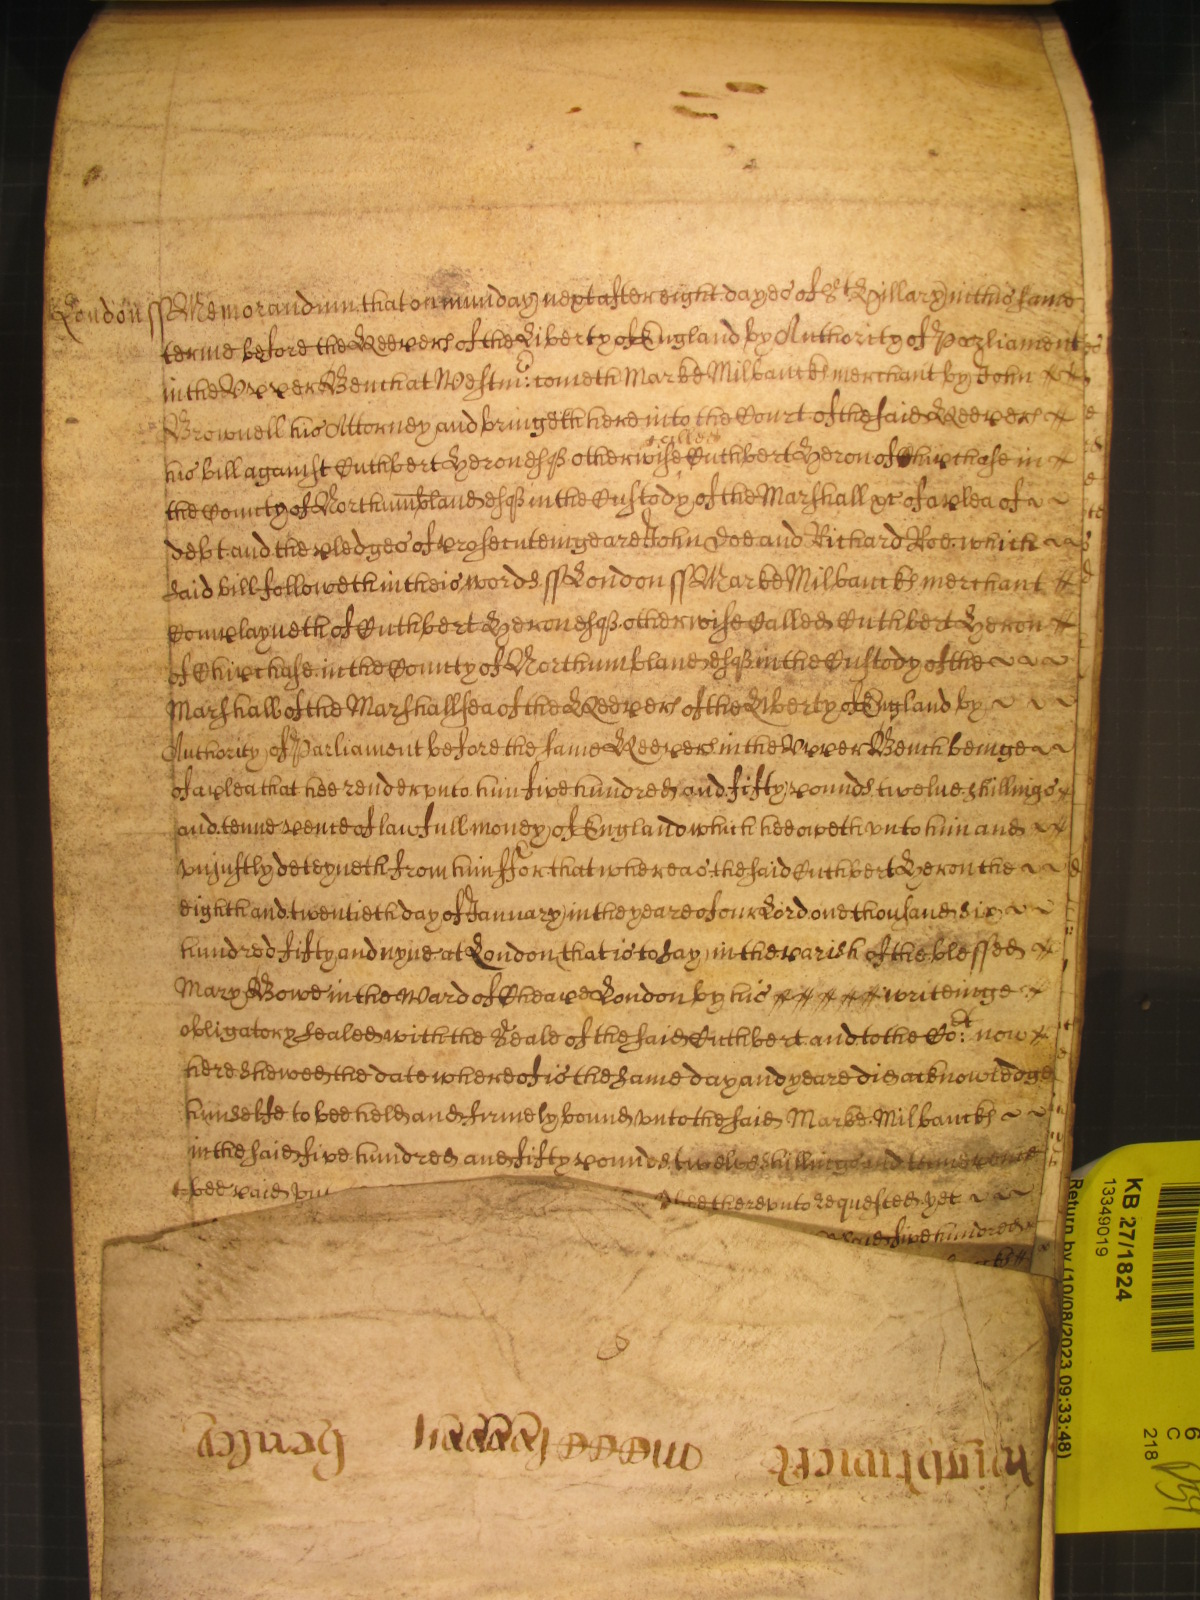 London ss Memorandum that on munday next after eight dayes of St Hillary in this same
terme before the Keepers of the Liberty of England by Authority of Parliament
in the Upper Bench at Westmr: cometh Marke Milbancke merchant by John
Brownell his Attorney and bringeth here into the Court of the said Keepers
his bill against Cuthbert Heron esqr otherwise called Cuthbert Heron of Chipchase in
the County of Northumbland esqr in the Custody of the Marshall &c of a plea of
debt and the pledges of prosecuteinge are John Doe and Richard Roe which
said bill followeth in theis words ss London ss Marke Milbancke merchant
Complayneth of Cuthbert Heron esqr otherwise Called Cuthbert Heron
of Chipchase in the County of Northumbland esqr in the Custody of the
Marshall of the Marshallsea of the Keepers of the Liberty of England by
Authority of Parliament before the same Keepers in the Upper Bench beinge
of a plea that hee render unto him five hundred and fifty pounds twelve shillings
and tenne pence of lawfull money of England which hee oweth unto him and
unjustly deteyneth from him ffor that whereas the said Cuthbert Heron the
eighth and twentieth day of January in the yeare of our Lord one thousand six
hundred fifty and nyne at London (that is to say) in the parish of the blessed
Mary Bowe in the Ward of Cheape London by his writeinge
obligatory sealed with the Seale of the said Cuthbert and to the Cort: now
here shewed the date whereof is the same day and yeare did acknowledge
himselfe to bee held and firmely bound unto the said Marke Milbancke
in the said five hundred and fifty pounds twelve shillings and tenne pence
to bee paid thereunto requested yet
said five hundred
KB 27/1824
13349019
Return by (10/08/2023 09:33:48)
6
C
218